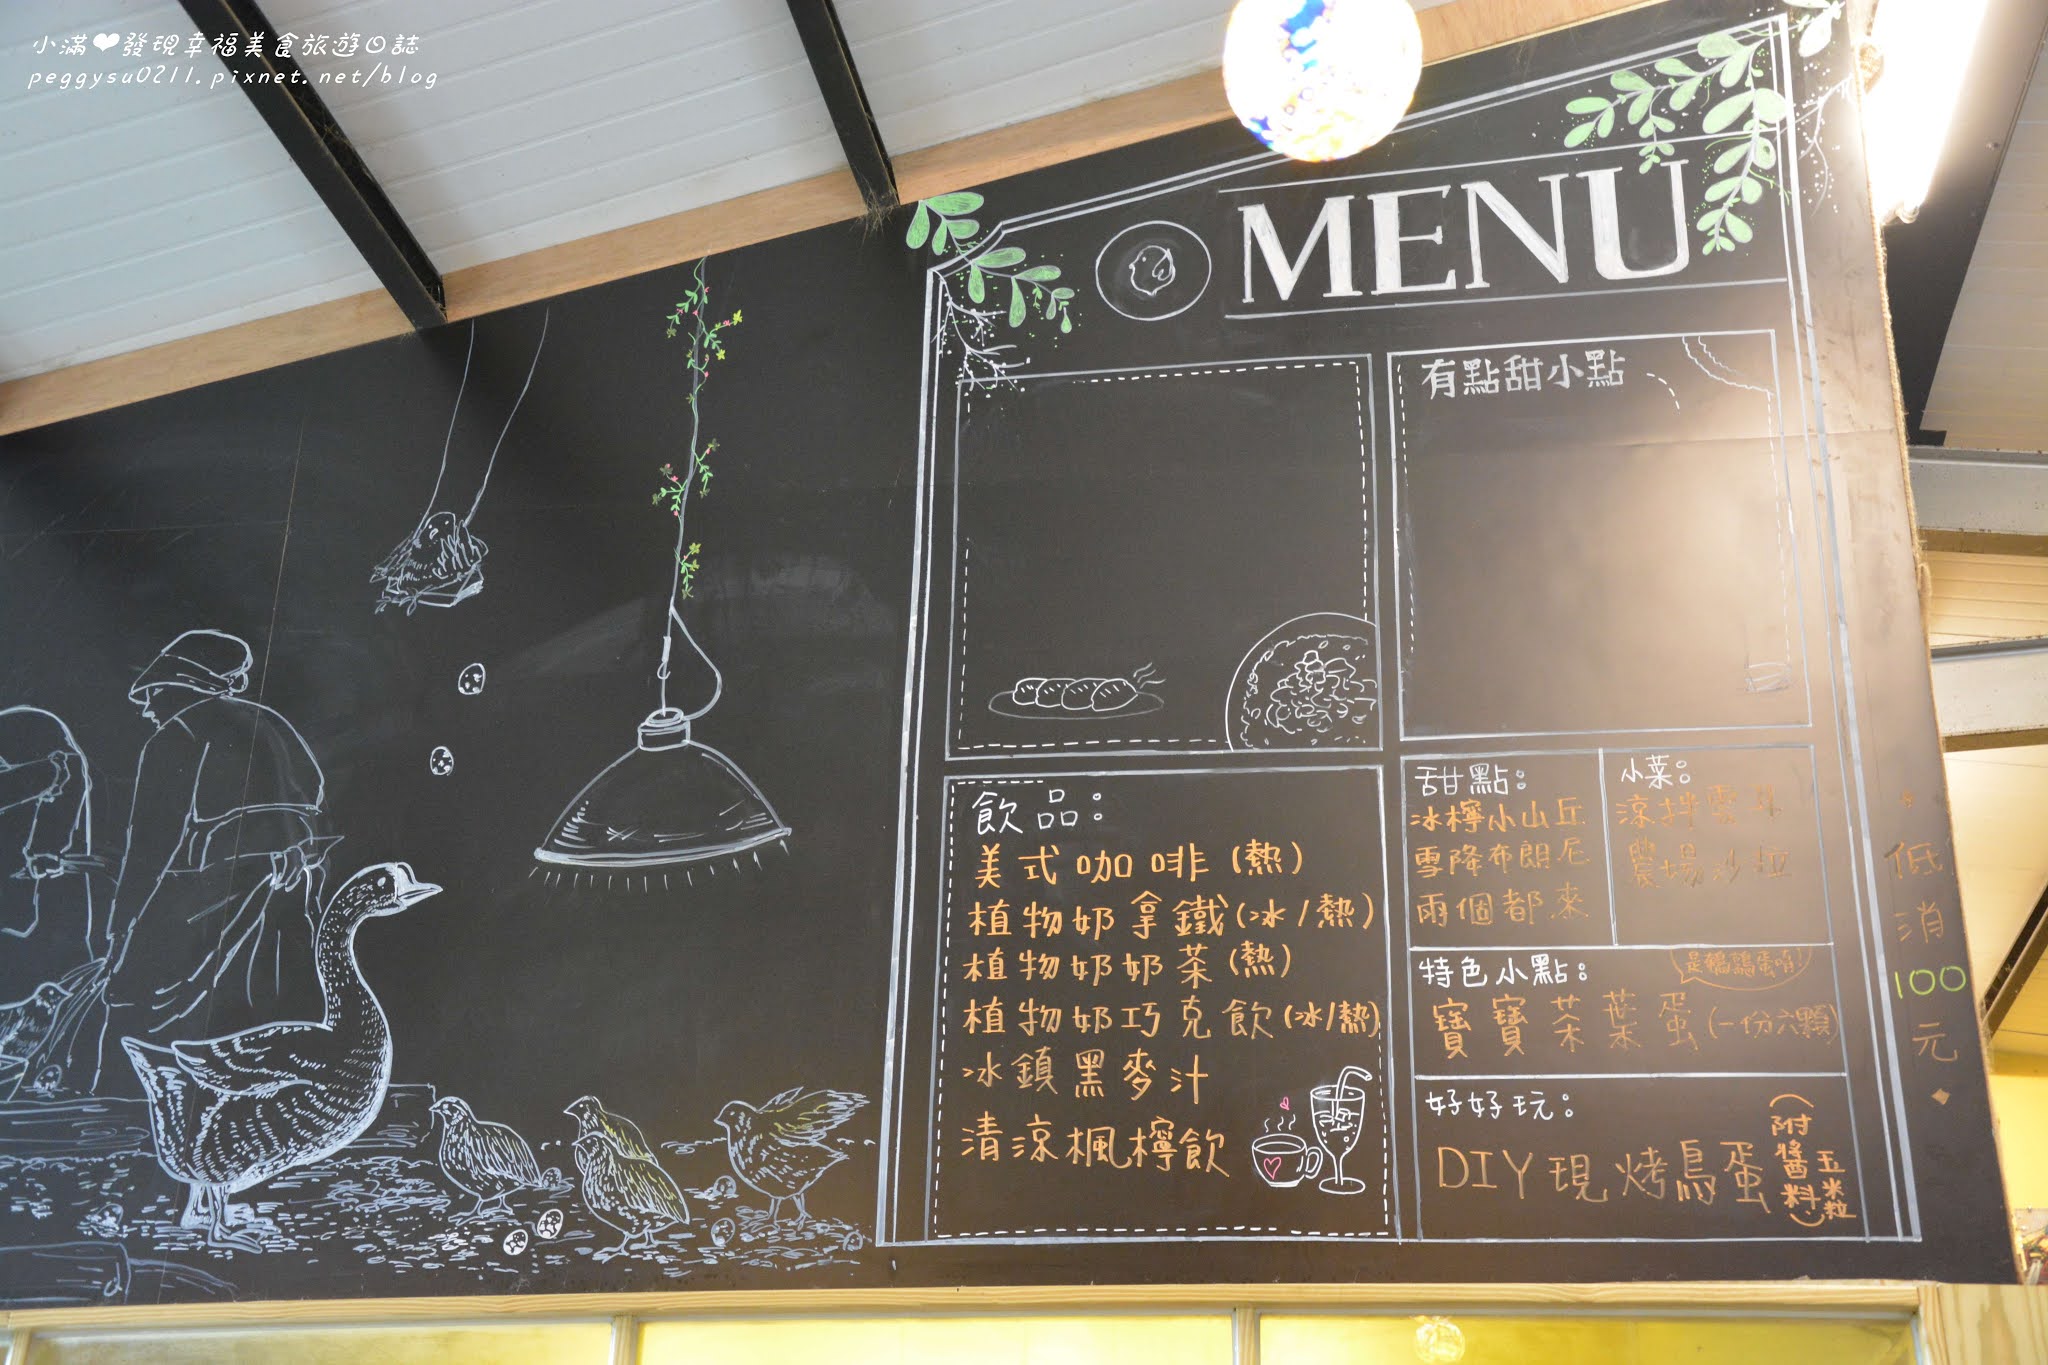 小滿❤發現幸福美食旅遊日誌
peggysu0211.pixnet.net/blog
MENU
有點甜小點
飲品：
美式咖啡(熱)
植物奶拿鐵(冰/熱)
植物奶奶茶(熱)
植物奶巧克飲(冰/熱)
冰鎮黑麥汁
清涼楓檸飲
甜點：
冰檸小山丘
雪降布朗尼
兩個都來
小菜：
涼拌雲耳
農場沙拉
特色小點：
是鵪鶉蛋唷!
寶寶茶葉蛋(一份六顆)
好好玩：
DIY現烤鳥蛋
(附醬料)
玉米粒
低消100元